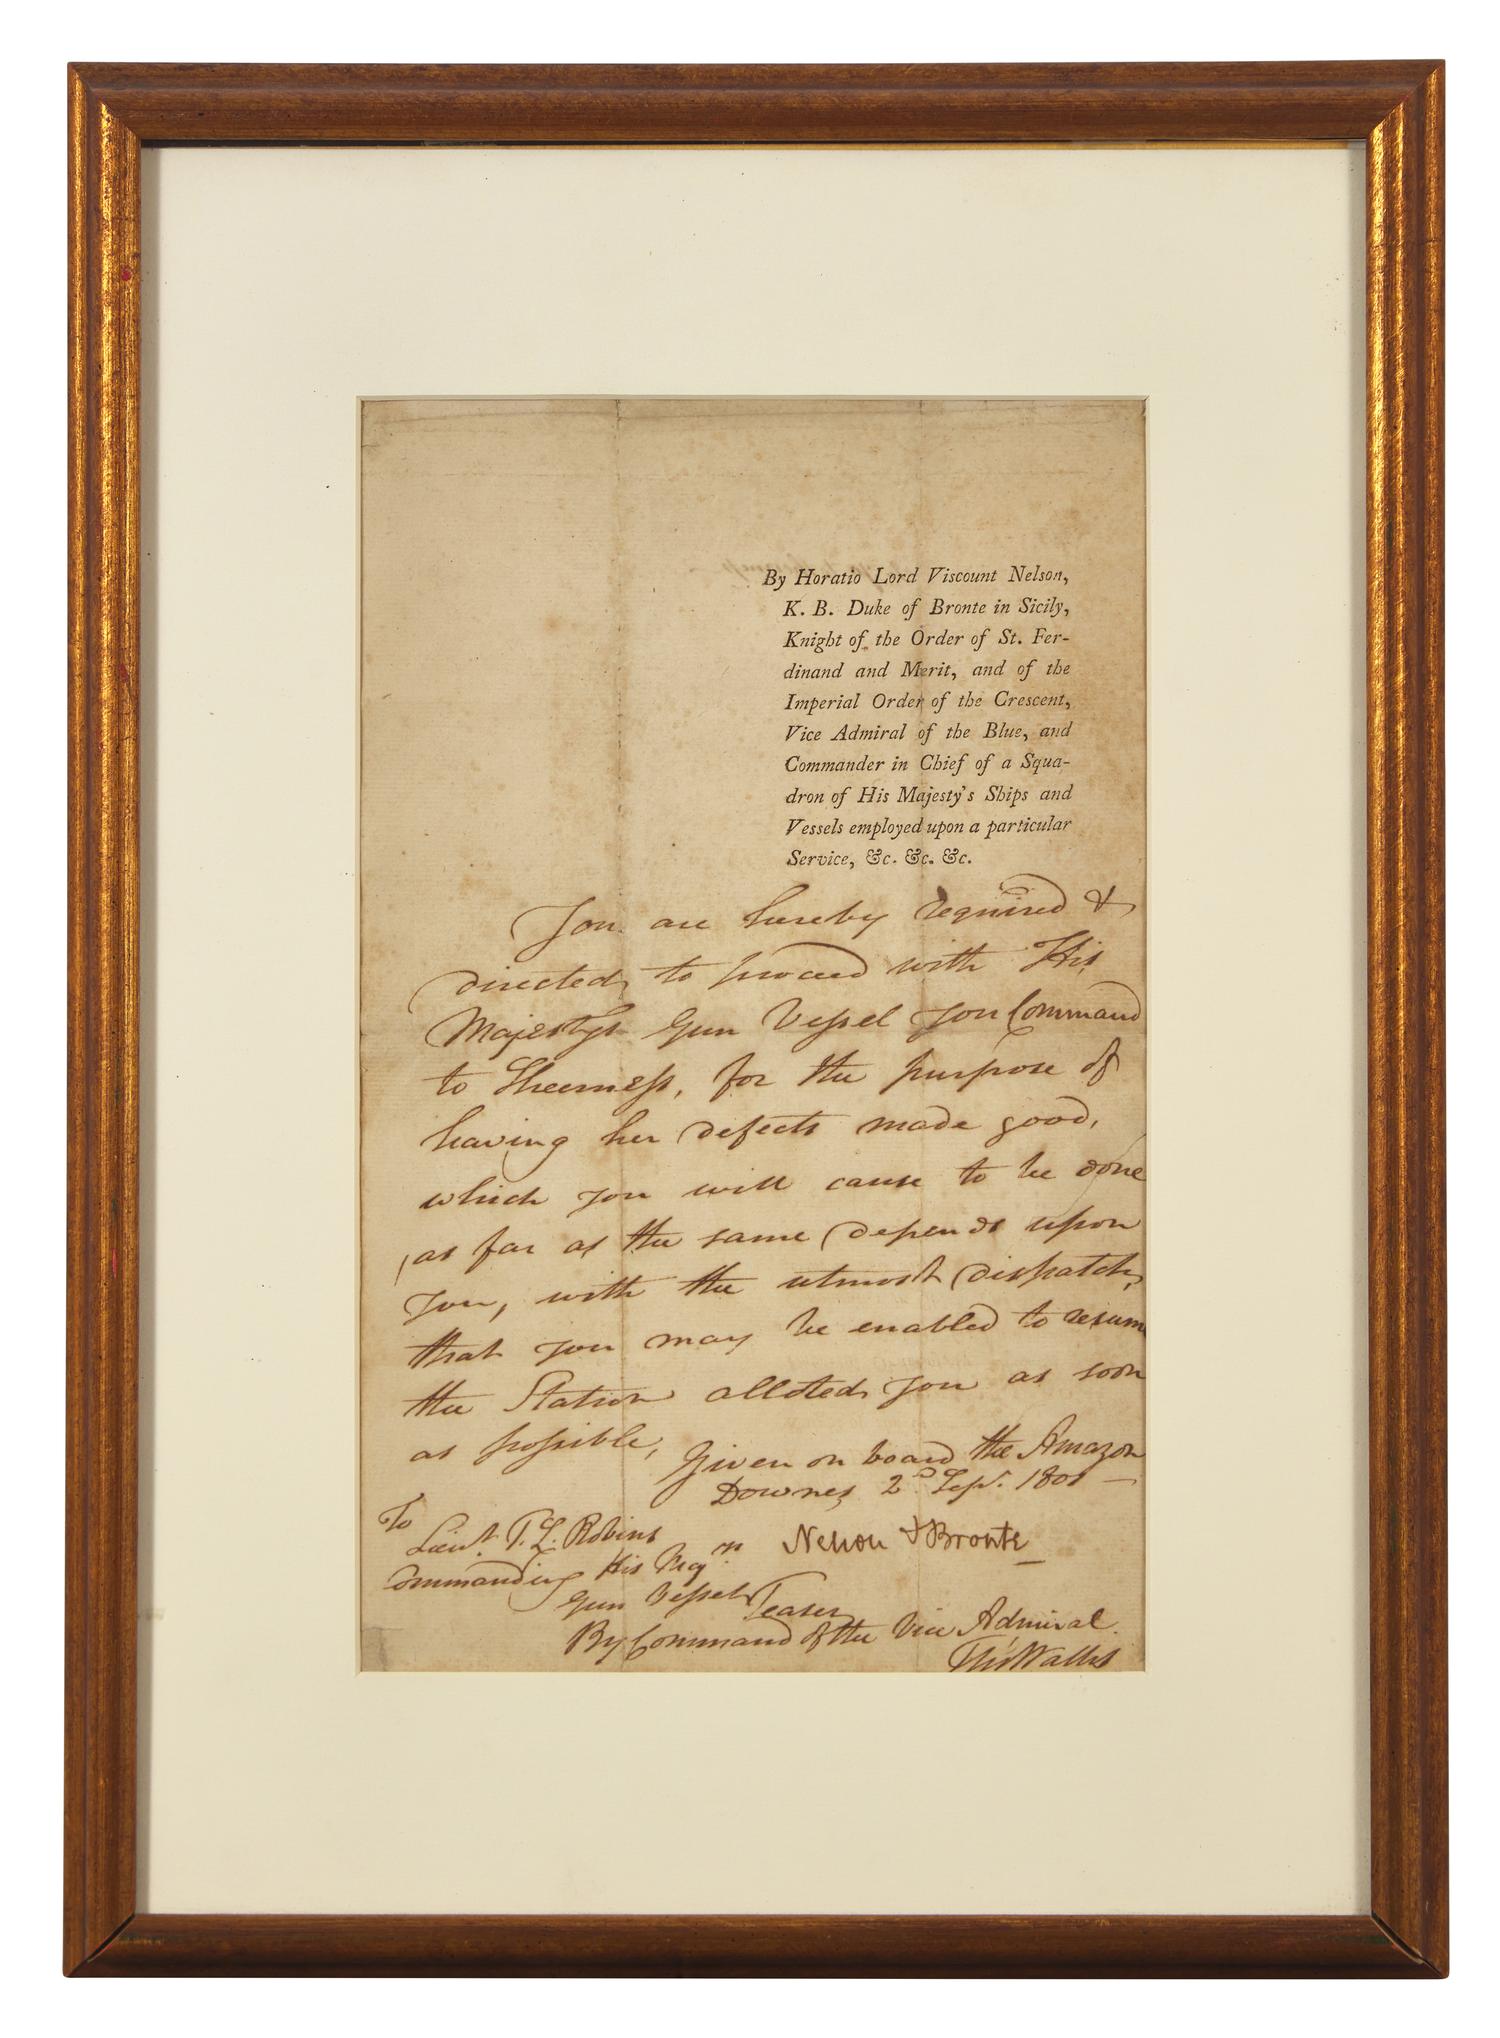 By Horatio Lord Viscount Nelson,
K. B. Duke of Bronte in Sicily,
Knight of the Order of St. Fer-
dinand and Merit, and of the
Imperial Order of the Crescent,
Vice Admiral of the Blue, and
Commander in Chief of a Squa-
dron of His Majesty's Ships and
Vessels employed upon a particular
Service, &c. &c. &c.
You are hereby required &
directed, to proceed with His
Majesty's Gun Vessel you Command
to Sheerness, for the purpose of
having her defects made good,
which you will cause to be done
as far as the same depends upon
you, with the utmost dispatch,
that you may be enabled to resum
the Station alloted you as soon
as possible, Given on board the Amazon
Downes 2d Sepr. 1801 —
To
Lieut. T. L. Robins
Nelson & Bronte
Commanding His
Gun Vessel Teaser
By Command of the Vice Admiral
Thos Wallis